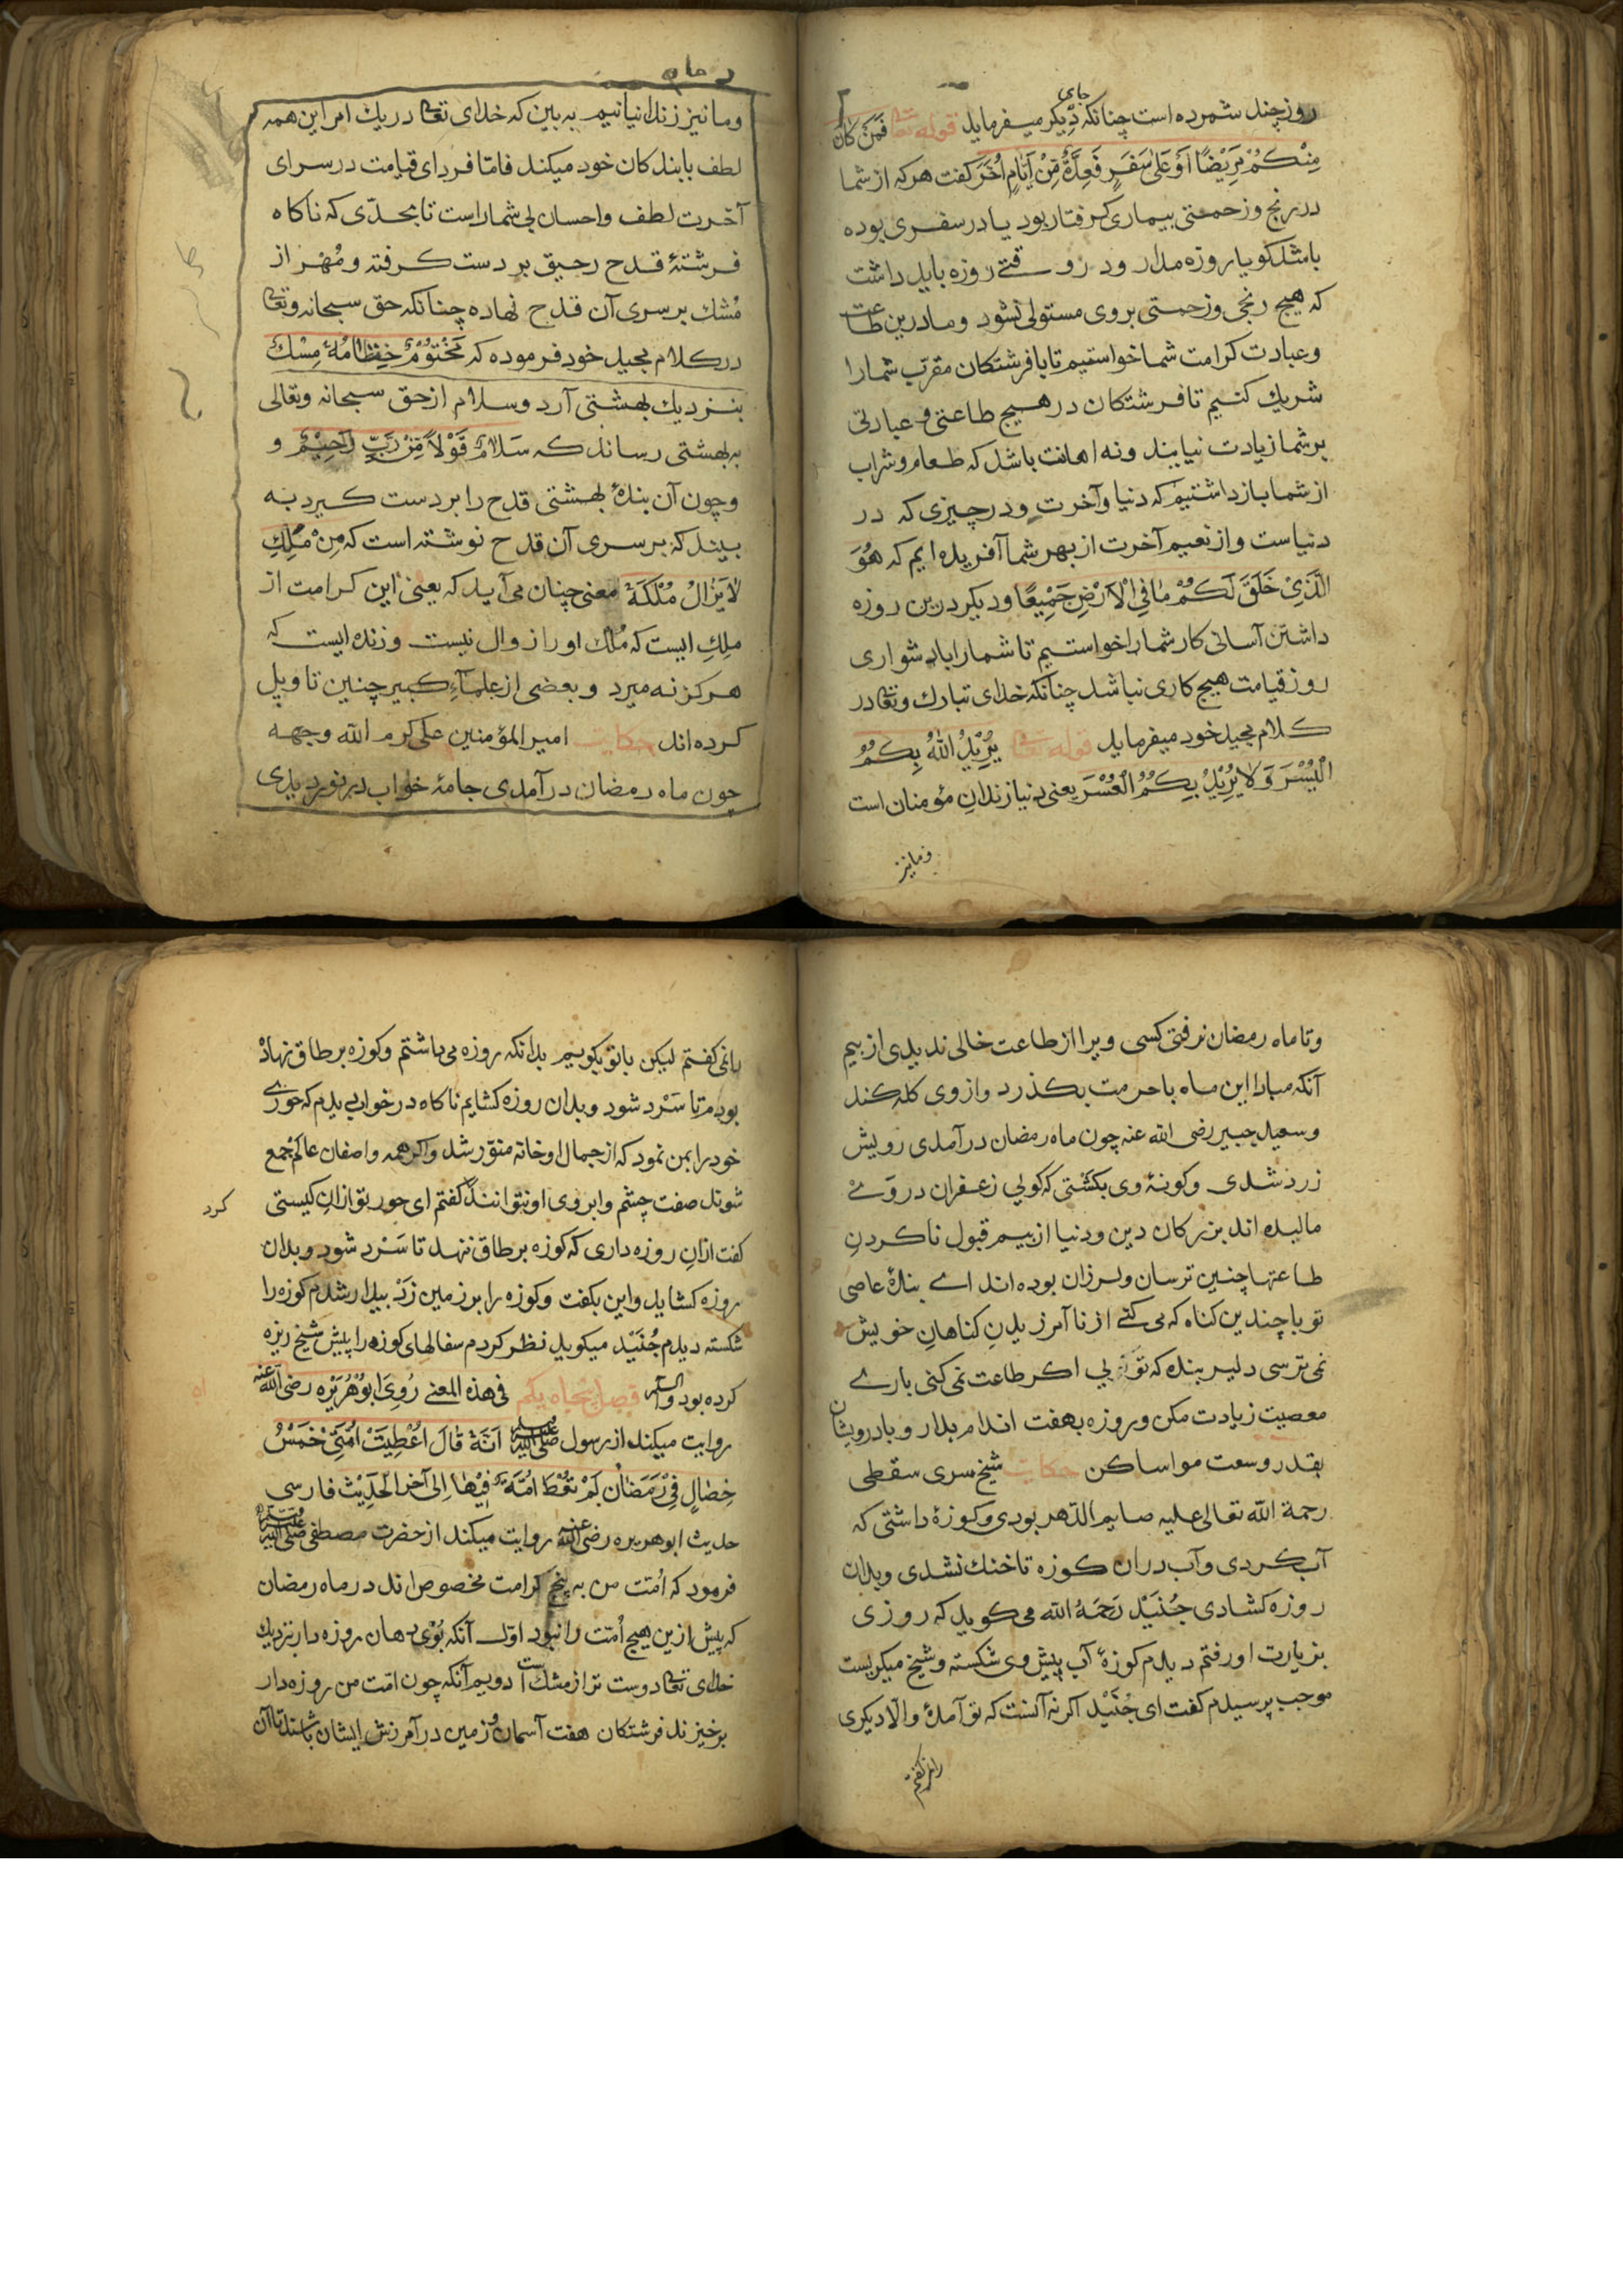 روز چند شمرده است چنانکه جای دیگر میفرماید قوله تعالی فَمَنْ كَانَ
مِنْكُمْ مَرِيْضًا اَوْ عَلٰى سَفَرٍ فَعِدَّةٌ مِّنْ اَيَّامٍ اُخَرَ گفت هر که از شما
در رنج و زحمتی بیماری گرفتار بود یا در سفری بوده
باشد کو یا روزه مدار و در وقتے روزه باید داشت
که هیچ رنجی و زحمتی بر وی مستولی نشود و ما درین طاعت
و عبادت کرامت شما خواستیم تا با فرشتکان مقرّب شما را
شریك کنیم تا فرشتکان در هیچ طاعتی و عبادتی
بر شما زیادت نیابند و نه اهانت باشد که طعام و شراب
از شما باز داشتیم که دنیا و آخرت و در چیزی که در
دنیاست و از نعیم آخرت از بهر شما آفریده ایم که هُوَ
الَّذِيْ خَلَقَ لَكُمْ مَا فِي الْاَرْضِ جَمِيْعًا و دیکر درین روزه
داشتن آسانی کار شما را خواستیم تا شما را با دشواری
روز قیامت هیچ کاری نباشد چنانکه خدای تبارك وتعا در
کلام مجید خود میفرماید قوله تعا يُرِيْدُ اللهُ بِكُمُ
الْيُسْرَ وَلَا يُرِيْدُ بِكُمُ الْعُسْرَ یعنی دنیا زندانِ مؤمنان است
و ما نیز
و ما نیز زندانیانیم به بین که خدای تعا در یك امر این همه
لطف با بندکان خود میکند فامّا فردای قیامت در سرای
آخرت لطف و احسان بی شمار است تا بحدّی که ناکاه
فرشتۀ قدح رحیق بر دست کرفته و مُهْر از
مُشك بر سری آن قدح نهاده چنانکه حق سبحانه وتعا
در کلام مجید خود فرموده که مَخْتُوْمٌ خِتَامُهٗ مِسْكٌ
بنزدیك بهشتی آرد و سلام از حق سبحانه وتعالی
به بهشتی رساند که سَلَامٌ قَوْلاً مِّنْ رَبٍّ رَّحِيْمٌ و
و چون آن بندۀ بهشتی قدح را بر دست کیرد به
بیند که بر سری آن قدح نوشته است که مِنْ مَلِكِ
لَا يَزَالُ مُلْكُهٗ معنی چنان می آید که یعنی این کرامت از
ملِكِ ایست که مُلك او را زوال نیست و زنده ایست که
هرکز نه میرد و بعضی از علماءِ کبیر چنین تاویل
کرده اند حکایت امیر المؤمنین علی کرم الله وجهه
چون ماه رمضان در آمدی جامۀ خواب در نوردیدی
و تا ماه رمضان نرفتی کسی ویرا از طاعت خالی ندیدی از بیم
آنکه مبادا این ماه با حرمت بکذرد و از وی کله کند
و سعید جبیر رضی الله عنه چون ماه رمضان در آمدی رویش
زرد شدی و کونۀ وی بکشتی که کویی زعفران در وے
مالیده اند بزرکان دین و دنیا از بیم قبول ناکردنِ
طاعتها چنین ترسان و لرزان بوده اند اے بندۀ عاصی
تو با چندین کناه که می کنے از نا آمرزیدنِ کناهانِ خویش
نمی ترسی دلیر بنده که تویی اکر طاعت نمی کنی بارے
معصیت زیادت مکن و روزه بهفت اندام بدار و با درویشان
بقدر وسعت مواسا کن حکایت شیخ سری سقطی
رحمة الله تعالی علیه صایم الدّهر بودی و کوزۀ داشتی که
آب کردی و آب در ان کوزه تا خنك نشدی و بدان
روزه کشادی جُنَيْد رَحِمَهُ الله می کوید که روزی
بزیارت او رفتم دیدم کوزۀ آب پیش وی شکسته و شیخ میکریست
موجب پرسیدم کفت ای جُنَيْد اکر نه آنست که تو آمدۀ والّا دیکری
را نمی کفتم
را نمی کفتم لیکن با تو بکویم بدانکه روزه می داشتم و کوزه بر طاق نهادْ
بودم تا سَرْد شود و بدان روزه کشایم ناکاه در خواب دیدم که حوری
خود را بمن نمود که از جمال او خانه منوّر شد و اکر همه واصفان عالم جمع
شوند صفت چشم و ابروی او نتوانند کرد کفتم ای حور تو ازانِ کیستی
کفت ازانِ روزه داری که کوزه بر طاق ننهد تا سَرْد شود و بدان
روزه کشاید و این بکفت و کوزه را بر زمین زَدْ بیدار شدم کوزه را
شکسته دیدم جُنَيْد میکوید نظر کردم سفالهای کوزه را پیش شیخ ریزه
کرده بود فصل پنجاه یکم فی هذه المعنے رُوِيَ ابُوْهُرَيْرَه رضی الله عنه
روایت میکند از رسول صلی الله علیه وسلم اَنَّهٗ قَالَ اُعْطِيَتْ اُمَّتِيْ خَمْسُ
خِصَالٍ فِيْ رَمَضَان لَمْ تُعْطَ اُمَّةٌ فِيْهَا اِلى آخر الْحَدِيْث فارسی
حدیث ابو هریره رضی الله عنه روایت میکند از حضرت مصطفی صلی الله علیه وسلم
فرمود که اُمّت من به پنج کرامت مخصوص اند در ماه رمضان
که پیش ازین هیچ اُمّت را نبود اوّل آنکه بُوْی دهان روزه دار نزدیك
خدای تعا دوست تر از مشك است دویم آنکه چون امّت من روزه دار
برخیزند فرشتکان هفت آسمان و زمین در آمرزش ایشان باشند تا آن